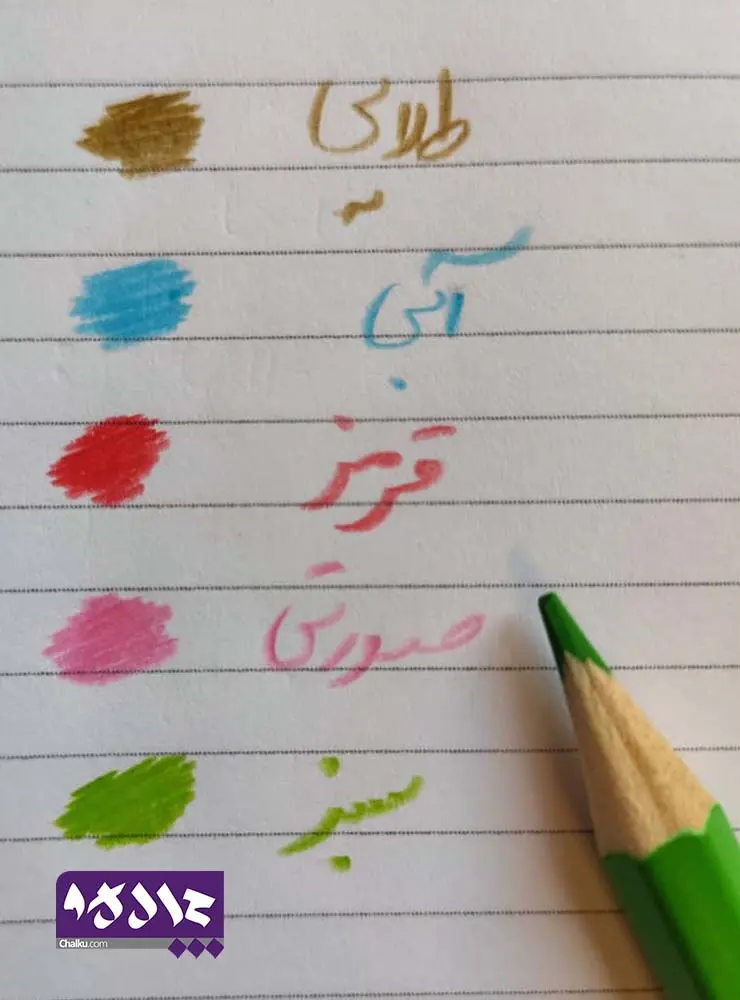 طلایی
آبی
قرمز
صورتی
سبز
چالاکو
Chalku.com